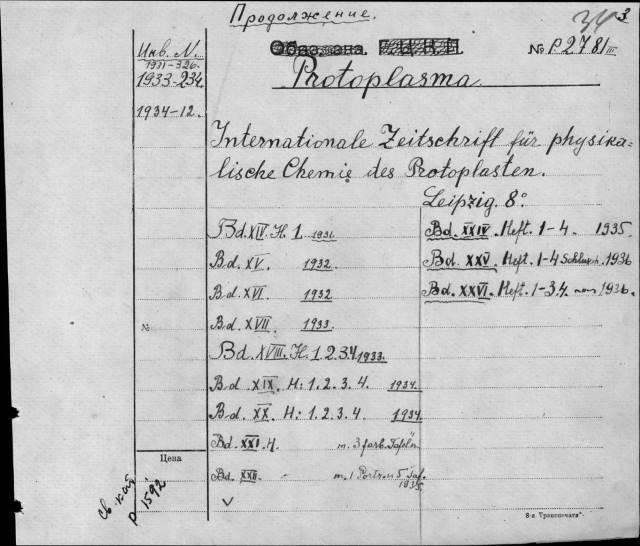 Продолжение.
3
Инв. N.
1931-326.
1933-234.
1934-12.
№ P2781 III
Protoplasma.
Internationale Zeitschrift für physika=
lische Chemie des Protoplasten.
Leipzig. 8°.
Bd. XIV. H. 1. 1931.
Bd. XV. 1932.
Bd. XVI. 1932
Bd. XVII. 1933.
Bd. XVIII. H. 1. 2. 3. 4 1933.
Bd. XIX. H: 1. 2. 3. 4. 1934.
Bd. XX. H: 1. 2. 3. 4. 1934.
Bd. XXI. H. m. 3 farb. Tafeln
Bd. XXII - m. 1 Portr. u 5 Taf.
1935
Bd. XXIV. Heft. 1-4. 1935.
Bd. XXV. Heft. 1-4 Schluss. 1936
Bd. XXVI. Heft. 1-3.4. 1936.
№
Цена
св. кат.
P 1592
8-я Транспечать".